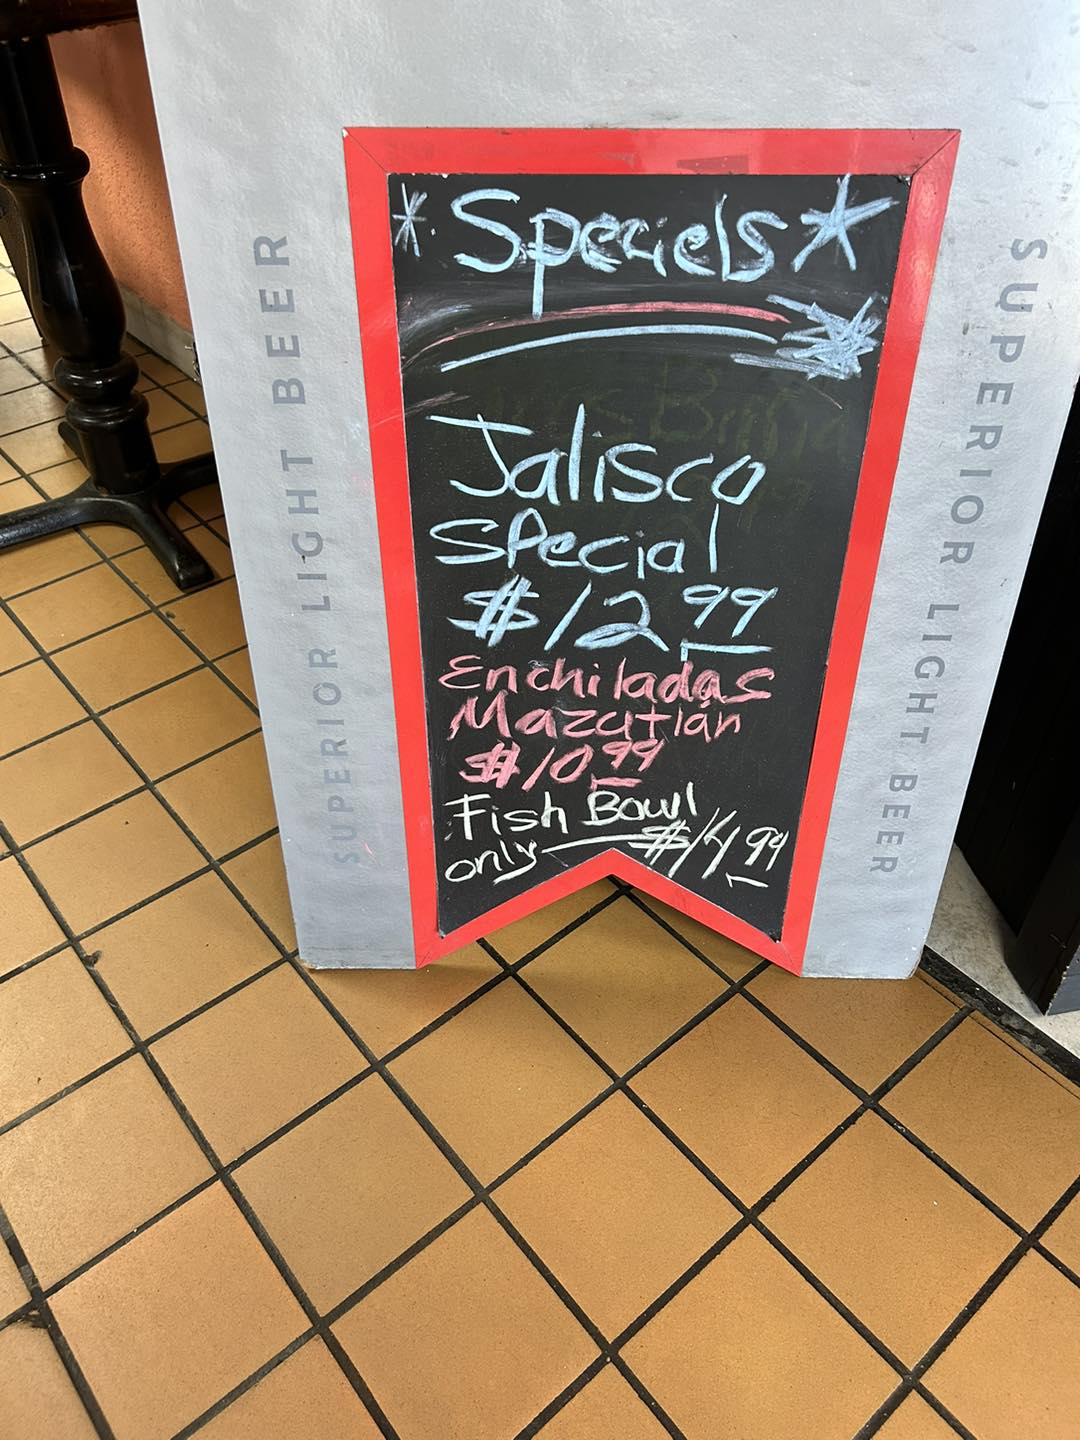 SUPERIOR LIGHT BEER
* Speciels *
Jalisco
Special
$12.99
Enchiladas
Mazatlán
$10.99
Fish Bowl
only $14.99
SUPERIOR LIGHT BEER